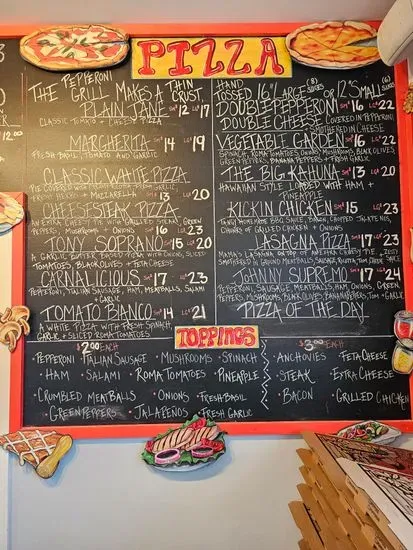 PIZZA
PEPPERONI
THE GRILL MAKES A THIN CRUST
HAND TOSSED 16" LARGE (8) SLICES OR 12" SMALL (6) SLICES
PLAIN JANE SM 12 LG 17
CLASSIC TOMATO + CHEESE PIZZA
MARGHERITA 14 19
FRESH BASIL, TOMATO AND GARLIC
CLASSIC WHITE PIZZA
FRESH HERBS + MOZZARELLA SM 13 LG 20
CHEESE STEAK PIZZA
AN EXTRA CHEESY PIE WITH GRILLED STEAK, GREEN
PEPPERS, MUSHROOMS + ONIONS SM 16 LG 23
TONY SOPRANO SM 15 LG 20
A GARLIC BUTTER BASED PIZZA WITH ONIONS, SLICED
TOMATOES, BLACK OLIVES + FETA CHEESE
CARNIVOROUS SM 17 LG 23
PEPPERONI, ITALIAN SAUSAGE, HAM, MEATBALLS, SALAMI
+ GARLIC
TOMATO BIANCO SM 14 LG 21
A WHITE PIZZA WITH FRESH SPINACH,
GARLIC + SLICED ROMA TOMATOES
DOUBLE PEPPERONI SM 16 LG 22
DOUBLE CHEESE COVERED IN PEPPERONI
SMOTHERED IN CHEESE
VEGETABLE GARDEN SM 16 LG 22
SPINACH, ROMA TOMATOES, ONIONS, MUSHROOMS, BLACK OLIVES,
GREEN PEPPERS, BANANA PEPPERS + FRESH GARLIC
THE BIG KAHUNA SM 13 LG 20
HAWAIIAN STYLE LOADED WITH HAM +
PINEAPPLE
KICKIN CHICKEN SM 15 LG 23
TANGY HOMEMADE BBQ SAUCE, BACON, CHOPPED JALAPENOS,
CHUNKS OF GRILLED CHICKEN + ONIONS
LASAGNA PIZZA SM 17 LG 23
SMOTHERED IN GROUND MEATBALLS, SAUSAGE, RICOTTA
JOHNNY SUPREMO SM 17 LG 24
PEPPERONI, SAUSAGE, MEATBALLS, HAM, ONIONS, GREEN
PEPPERS, MUSHROOMS, BLACK OLIVES, BANANA PEPPERS, TOM. + GARLIC
PIZZA OF THE DAY
TOPPINGS
$2.00 EACH
• PEPPERONI • ITALIAN SAUSAGE • MUSHROOMS • SPINACH
• HAM • SALAMI • ROMA TOMATOES • PINEAPPLE
• CRUMBLED MEATBALLS • ONIONS • FRESH BASIL
• GREEN PEPPERS • JALAPEÑOS • FRESH GARLIC
$3.00 EACH
• ANCHOVIES • FETA CHEESE
• STEAK • EXTRA CHEESE
• BACON • GRILLED CHICKEN